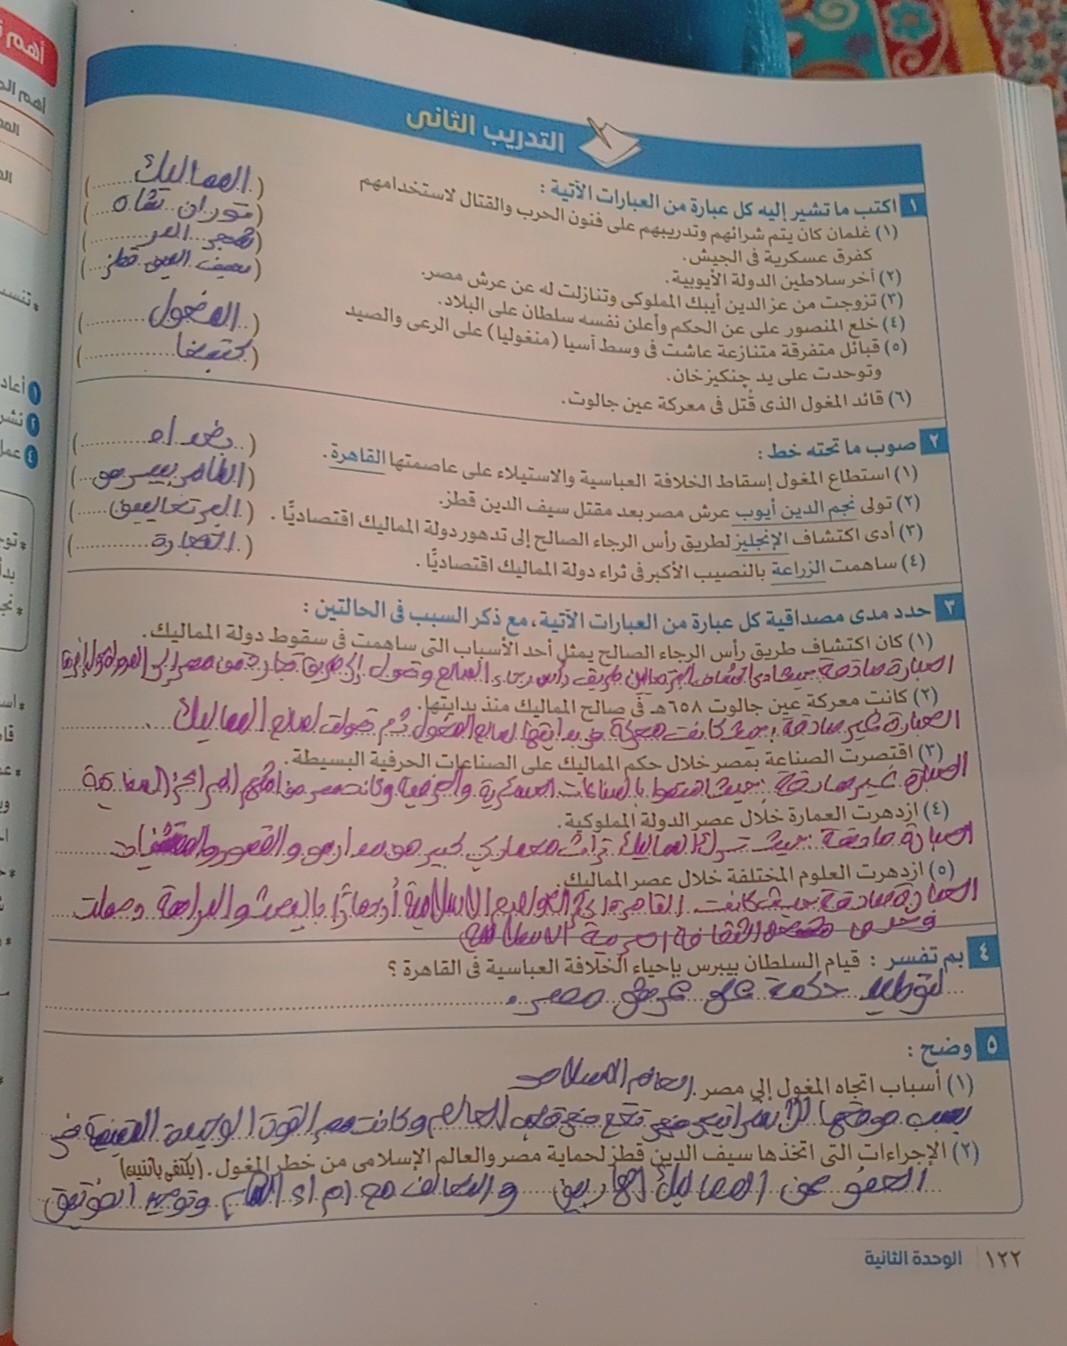 أهم
أهم
التدريب الثانى
١ اكتب ما تشير إليه كل عبارة من العبارات الآتية :
(١) غلمان كان يتم شرائهم وتدريبهم على فنون الحرب والقتال لاستخدامهم (المماليك)
كفرق عسكرية فى الجيش.
(٢) آخر سلاطين الدولة الأيوبية. (توران شاه)
(٣) تزوجت من عز الدين أيبك المملوكى وتنازلت له عن عرش مصر. (شجر الدر)
(٤) خلع المنصور على عن الحكم وأعلن نفسه سلطان على البلاد. (سيف الدين قطز)
(٥) قبائل متفرقة متنازعة عاشت فى وسط آسيا (منغوليا) على الرعى والصيد (المغول)
وتوحدت على يد چنكيزخان.
(٦) قائد المغول الذى قُتل فى معركة عين جالوت. (كتبغا)
٢ صوب ما تحته خط :
(١) استطاع المغول إسقاط الخلافة العباسية والاستيلاء على عاصمتها القاهرة. (بغداد)
(٢) تولى نجم الدين أيوب عرش مصر بعد مقتل سيف الدين قطز. (الظاهر بيبرس)
(٣) أدى اكتشاف الإنجليز لطريق رأس الرجاء الصالح إلى تدهور دولة المماليك اقتصاديًا. (البرتغاليين)
(٤) ساهمت الزراعة بالنصيب الأكبر فى ثراء دولة المماليك اقتصاديًا. (التجارة)
٣ حدد مدى مصداقية كل عبارة من العبارات الآتية، مع ذكر السبب فى الحالتين :
(١) كان اكتشاف طريق رأس الرجاء الصالح يمثل أحد الأسباب التى ساهمت فى سقوط دولة المماليك.
العبارة صادقة حيث ادى اكتشاف البرتغالين طريق رأس رجاء الصالح
(٢) كانت معركة عين جالوت ٦٥٨هـ فى صالح المماليك منذ بدايتها.
العبارة غير صادقة ؛ حيث كانت معركة فى بدايتها لصالح المغول ثم تحولت لصالح المماليك
(٣) اقتصرت الصناعة بمصر خلال حكم المماليك على الصناعات الحرفية البسيطة.
العبارة غير صادقة : حيث اهتموا بالصناعات العسكرية والحرفية وكانت مصر من اهم المراكز الصناعية
(٤) ازدهرت العمارة خلال عصر الدولة المملوكية.
العبارة صادقة حيث ترك المماليك تراث معماري كبير من مدارس والقصور والمستشفيات
(٥) ازدهرت العلوم المختلفة خلال عصر المماليك.
العبارة صادقة حيث كانت القاهرة اكثر العواصم الاسلامية
الثقافة العربية الاسلامية
٤ بم تفسر : قيام السلطان بيبرس بإحياء الخلافة العباسية فى القاهرة ؟
لتوطيد حكمة على عرش مصر.
٥ وضح :
(١) أسباب اتجاه المغول إلى مصر.
بسبب موقعها الاستراتيجى فهى تقع فى قلب العالم وكانت مصر القوة الوحيدة المتبقية فى
العالم الاسلامى
(٢) الإجراءات التى اتخذها سيف الدين قطز لحماية مصر والعالم الإسلامى من خطر المغول. (يكتفى باثنين)
العفو عن المماليك الهاربين والتحالف مع امراء الشام وتوحيد
١٢٢ الوحدة الثانية